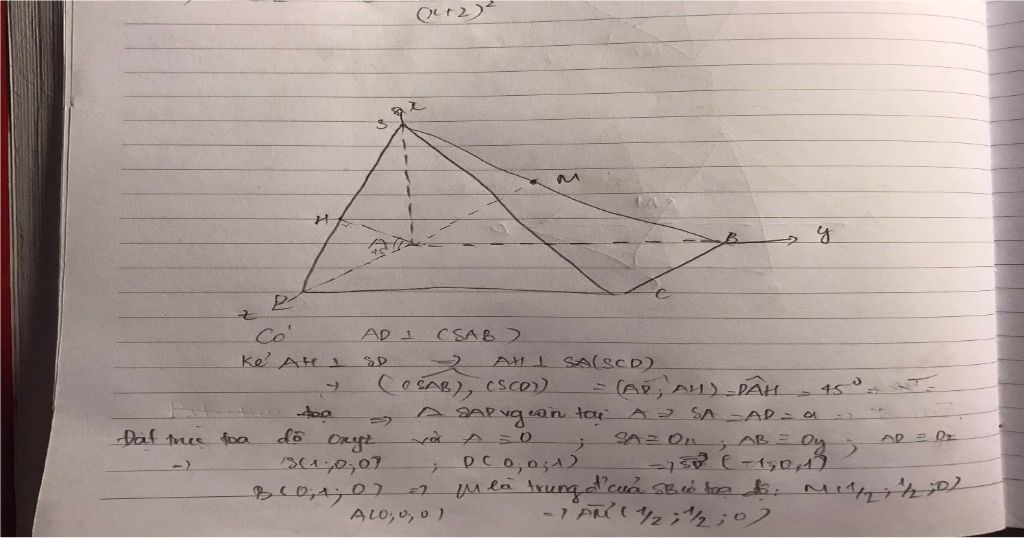 (x+2)²
x
S
M
H
A
45
B
y
D
C
z
Có AD ⊥ (SAB)
Kẻ AH ⊥ SD → AH ⊥ SA(SCD)
→ ((SAB), (SCD)) = (AD, AH) = DAH = 45°
⇒ Δ SAD vguân tại A ⇒ SA = AD = a
Đặt trục toạ độ Oxyz với A ≡ O ; SA ≡ Ox ; AB ≡ Oy ; AD ≡ Oz
→ S(1;0;0) ; D(0;0;1) → SD (-1;0;1)
B(0;1;0) ⇒ M là trung đ' của SB có toạ độ: M(1/2; 1/2; 0)
A(0;0;0) → AM (1/2; 1/2; 0)